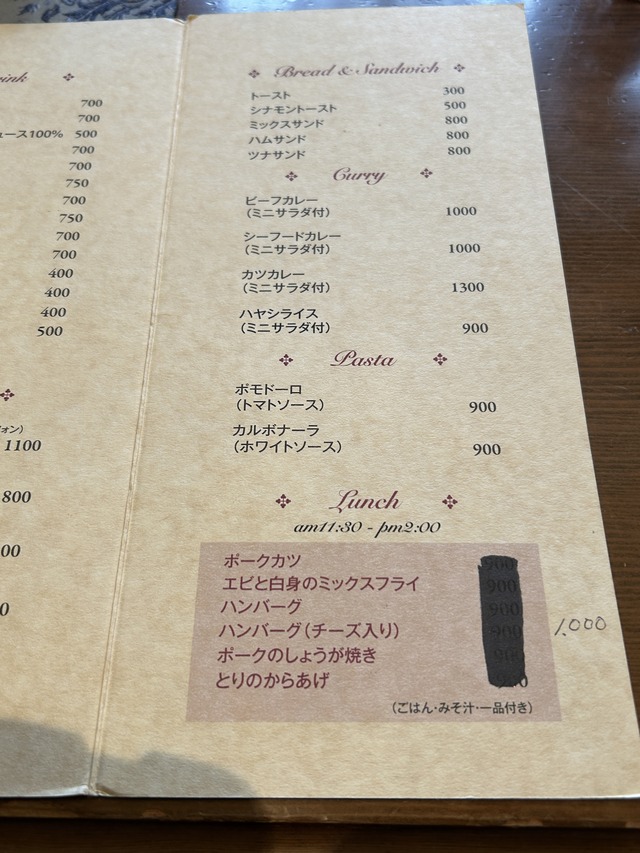 700
700
ュース100% 500
700
700
750
700
750
700
700
400
400
400
500
ォン)
1100
800
00
0
Bread & Sandwich
トースト 300
シナモントースト 500
ミックスサンド 800
ハムサンド 800
ツナサンド 800
Curry
ビーフカレー
(ミニサラダ付) 1000
シーフードカレー
(ミニサラダ付) 1000
カツカレー
(ミニサラダ付) 1300
ハヤシライス
(ミニサラダ付) 900
Pasta
ポモドーロ
(トマトソース) 900
カルボナーラ
(ホワイトソース) 900
Lunch
am11:30 - pm2:00
ポークカツ 900
エビと白身のミックスフライ 900
ハンバーグ 900
ハンバーグ(チーズ入り) 900
1.000
ポークのしょうが焼き 900
とりのからあげ 900
(ごはん・みそ汁・一品付き)